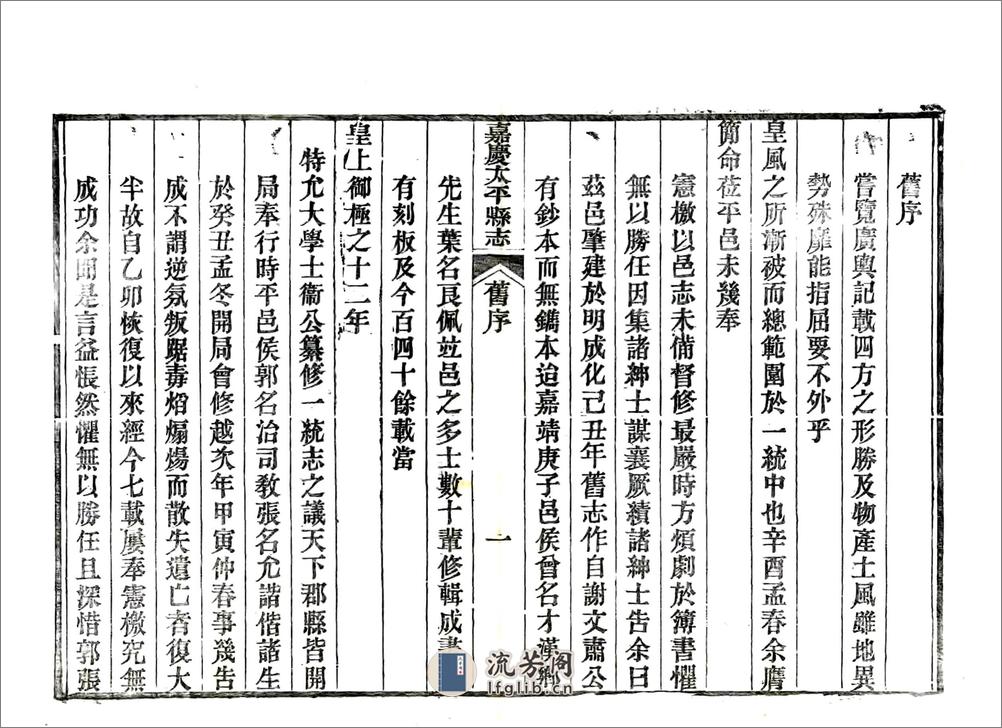 舊序
嘗覽廣輿記載四方之形勝及物產土風雖地異
勢殊靡能指屈要不外乎
皇風之所漸被而總範圍於一統中也辛酉孟春余膺
簡命莅平邑未幾奉
憲檄以邑志未備督修最嚴時方煩劇於簿書懼
無以勝任因集諸紳士謀襄厥績諸紳士告余曰
茲邑肇建於明成化己丑年舊志作自謝文肅公
有鈔本而無鐫本迨嘉靖庚子邑侯曾名才漢鄉
嘉慶太平縣志
舊序
一
先生葉名良佩竝邑之多士數十輩修輯成書
有刻板及今百四十餘載當
皇上御極之十二年
特允大學士衞公纂修一統志之議天下郡縣皆開
局奉行時平邑侯郭名治司教張名允諧偕諸生
於癸丑孟冬開局會修越次年甲寅仲春事幾告
成不謂逆氛叛踞毒熖煽煬而散失遺亡者復大
半故自乙卯恢復以來經今七載屢奉憲檄究無
成功余聞是言益悵然懼無以勝任且深惜郭張
流芳阁
lfglib.cn